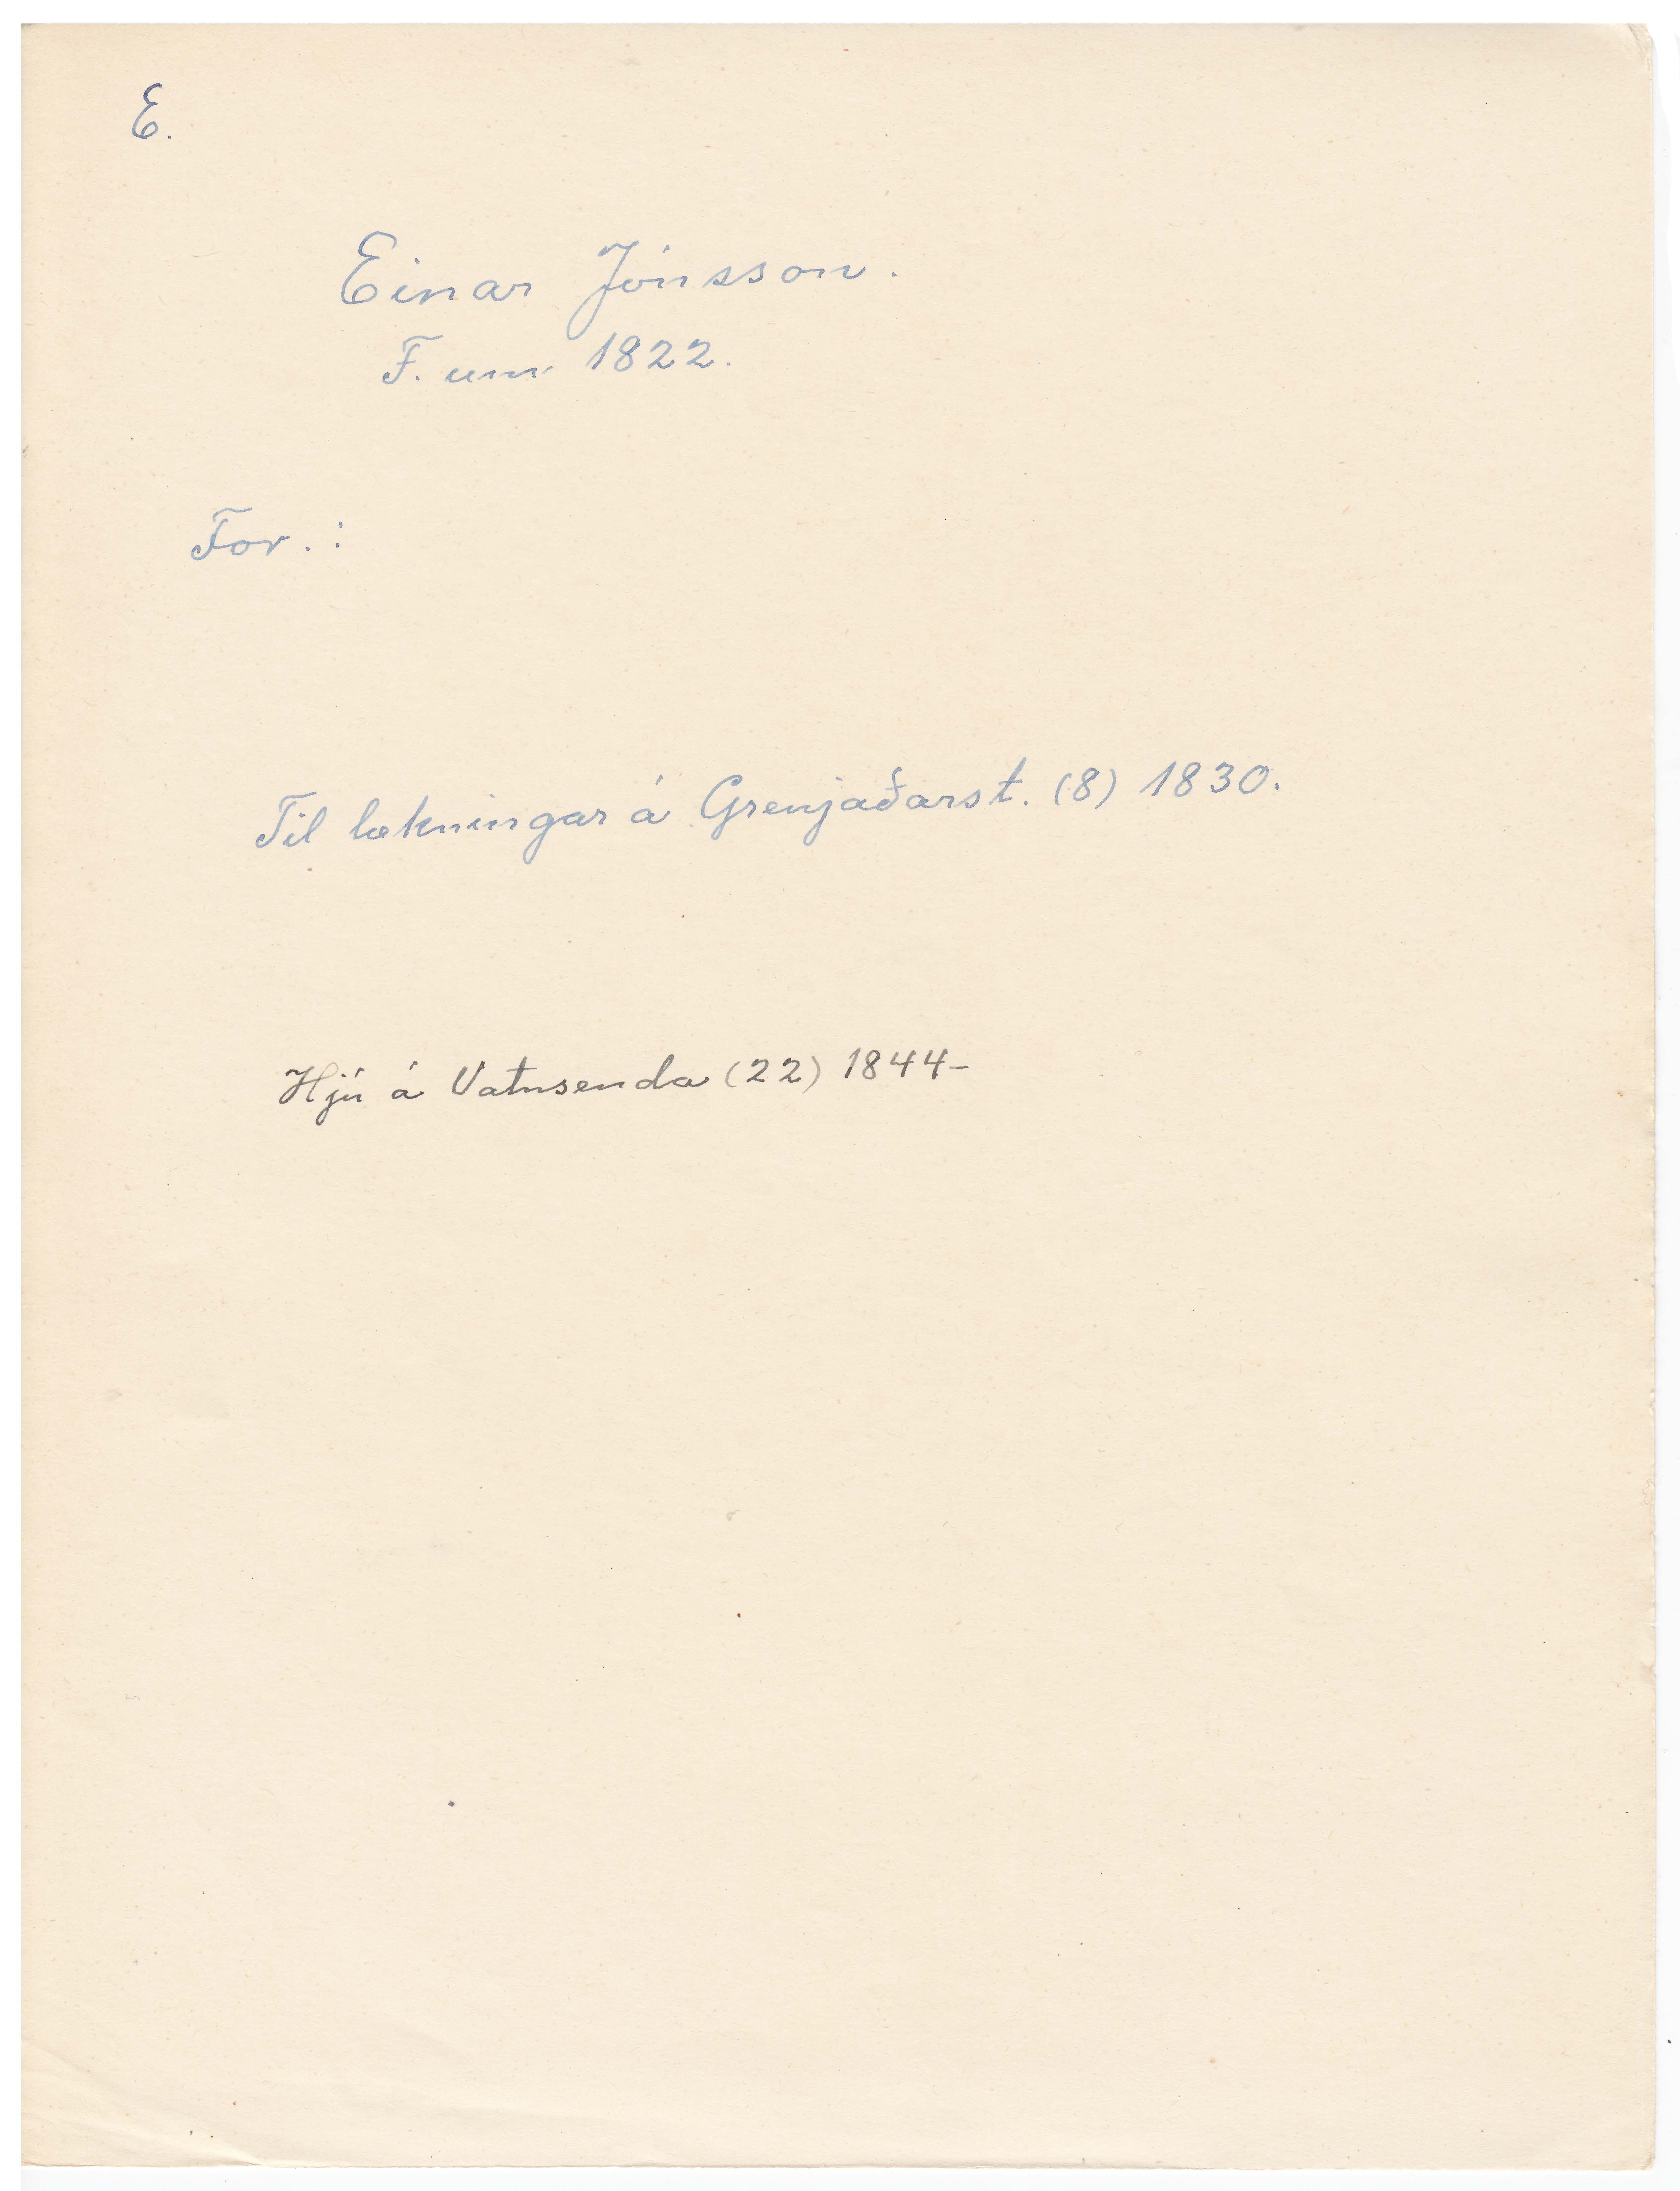 E.
Einar Jónsson.
F. um 1822.
For.:
Til lækningar á Grenjaðarst. (8) 1830.
Hjú á Vatnsenda (22) 1844-